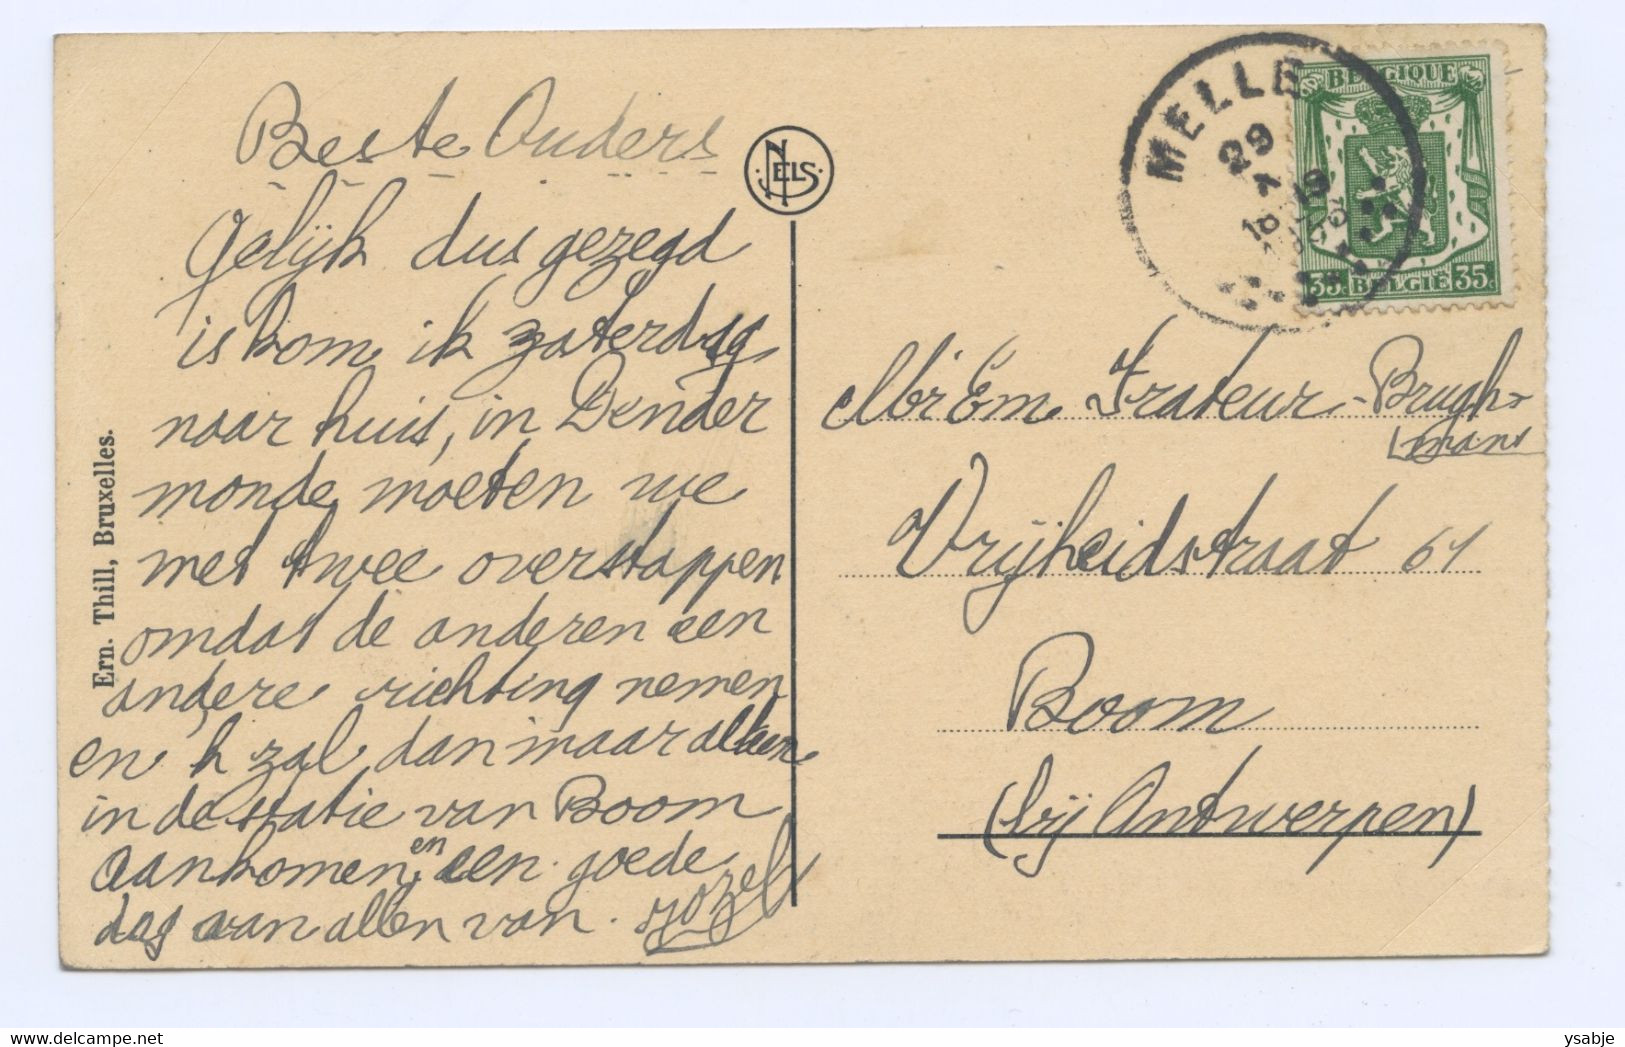 Beste Ouders
Gelijk dus gezegd
is kom ik zaterdag
naar huis, in Dender
monde moeten we
met twee overstappen
omdat de anderen een
andere richting nemen
en k zal dan maar alleen
in de statie van Boom
aankomen, en een goede
dag aan allen van Jozef
NELS
Ern. Thill, Bruxelles.
MELLE
29
BELGIQUE
35c BELGIË 35c
Mr Em Frateur-Brugh-
mans
Vrijheidstraat 61
Boom
(bij Antwerpen)
ysabje